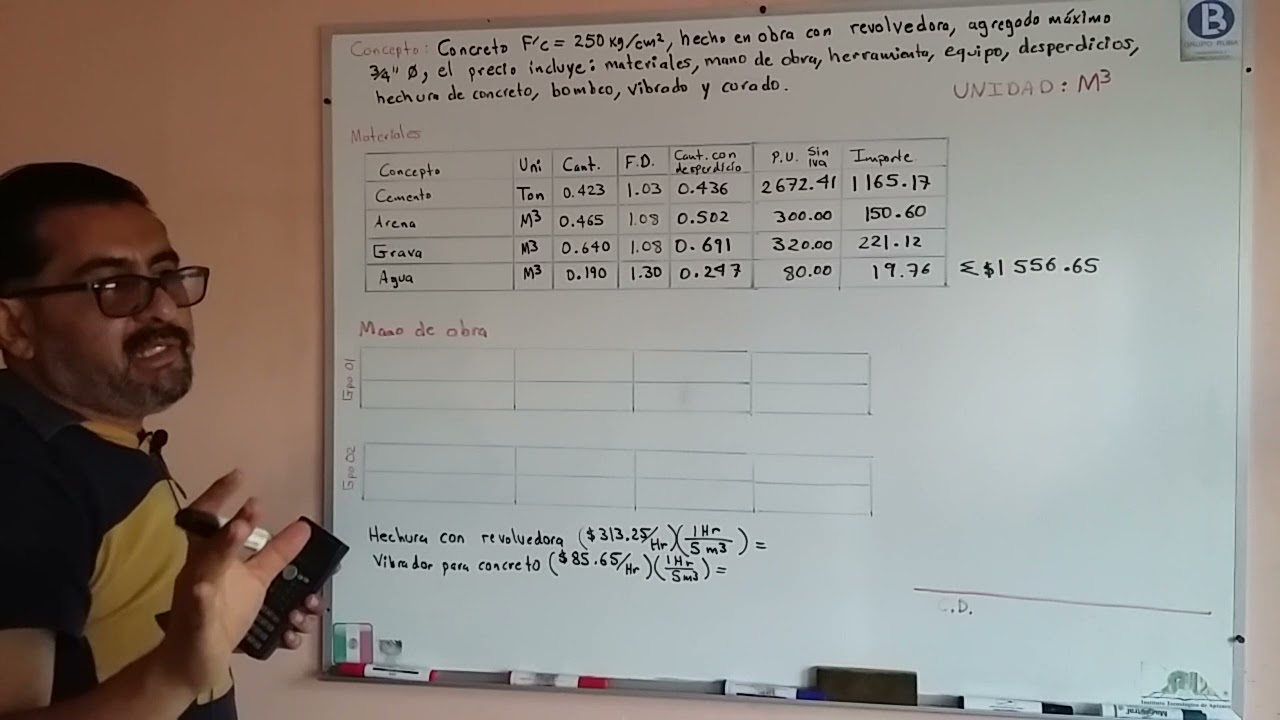 Concepto: Concreto F'c = 250 kg/cm², hecho en obra con revolvedora, agregado máximo
3/4" Ø, el precio incluye: materiales, mano de obra, herramienta, equipo, desperdicios,
hechura de concreto, bombeo, vibrado y curado.
UNIDAD: M³
B
GRUPO RUBA
Materiales
Concepto Uni Cant. F.D. Cant. con desperdicio P.U. Sin iva Importe
Cemento Ton 0.423 1.03 0.436 2672.41 1165.17
Arena M³ 0.465 1.08 0.502 300.00 150.60
Grava M³ 0.640 1.08 0.691 320.00 221.12
Agua M³ 0.190 1.30 0.247 80.00 19.76 Σ $1 556.65
Mano de obra
Gpo 01
Gpo 02
Hechura con revolvedora ($313.25/Hr)(1Hr/5m3) =
Vibrador para concreto ($85.65/Hr)(1Hr/5m3) =
C.D.
Instituto Tecnológico de Apizaco
Magistral